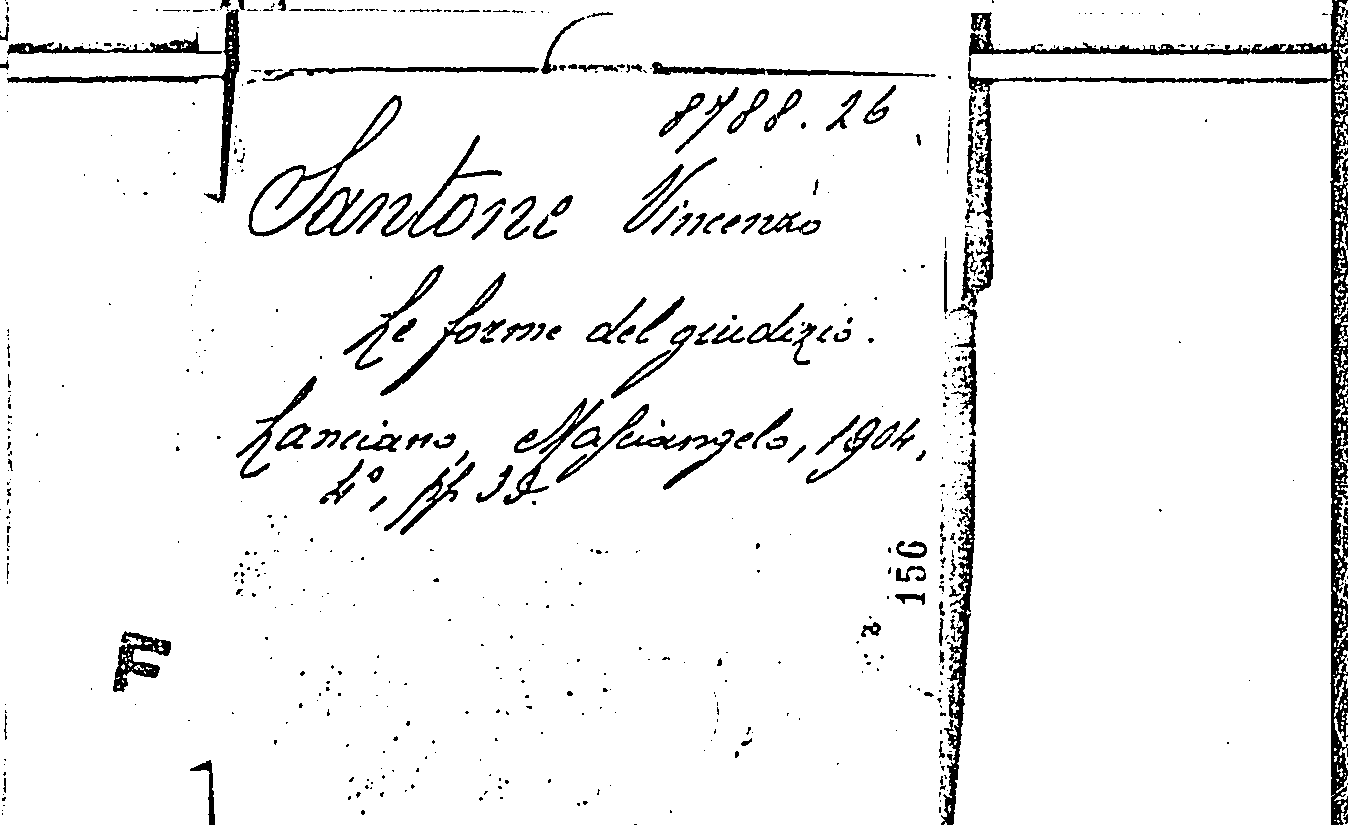 8788.26
Santone Vincenzo
Le forme del giudizio.
Lanciano, Masciangelo, 1904,
4°, pp 39.
156
F